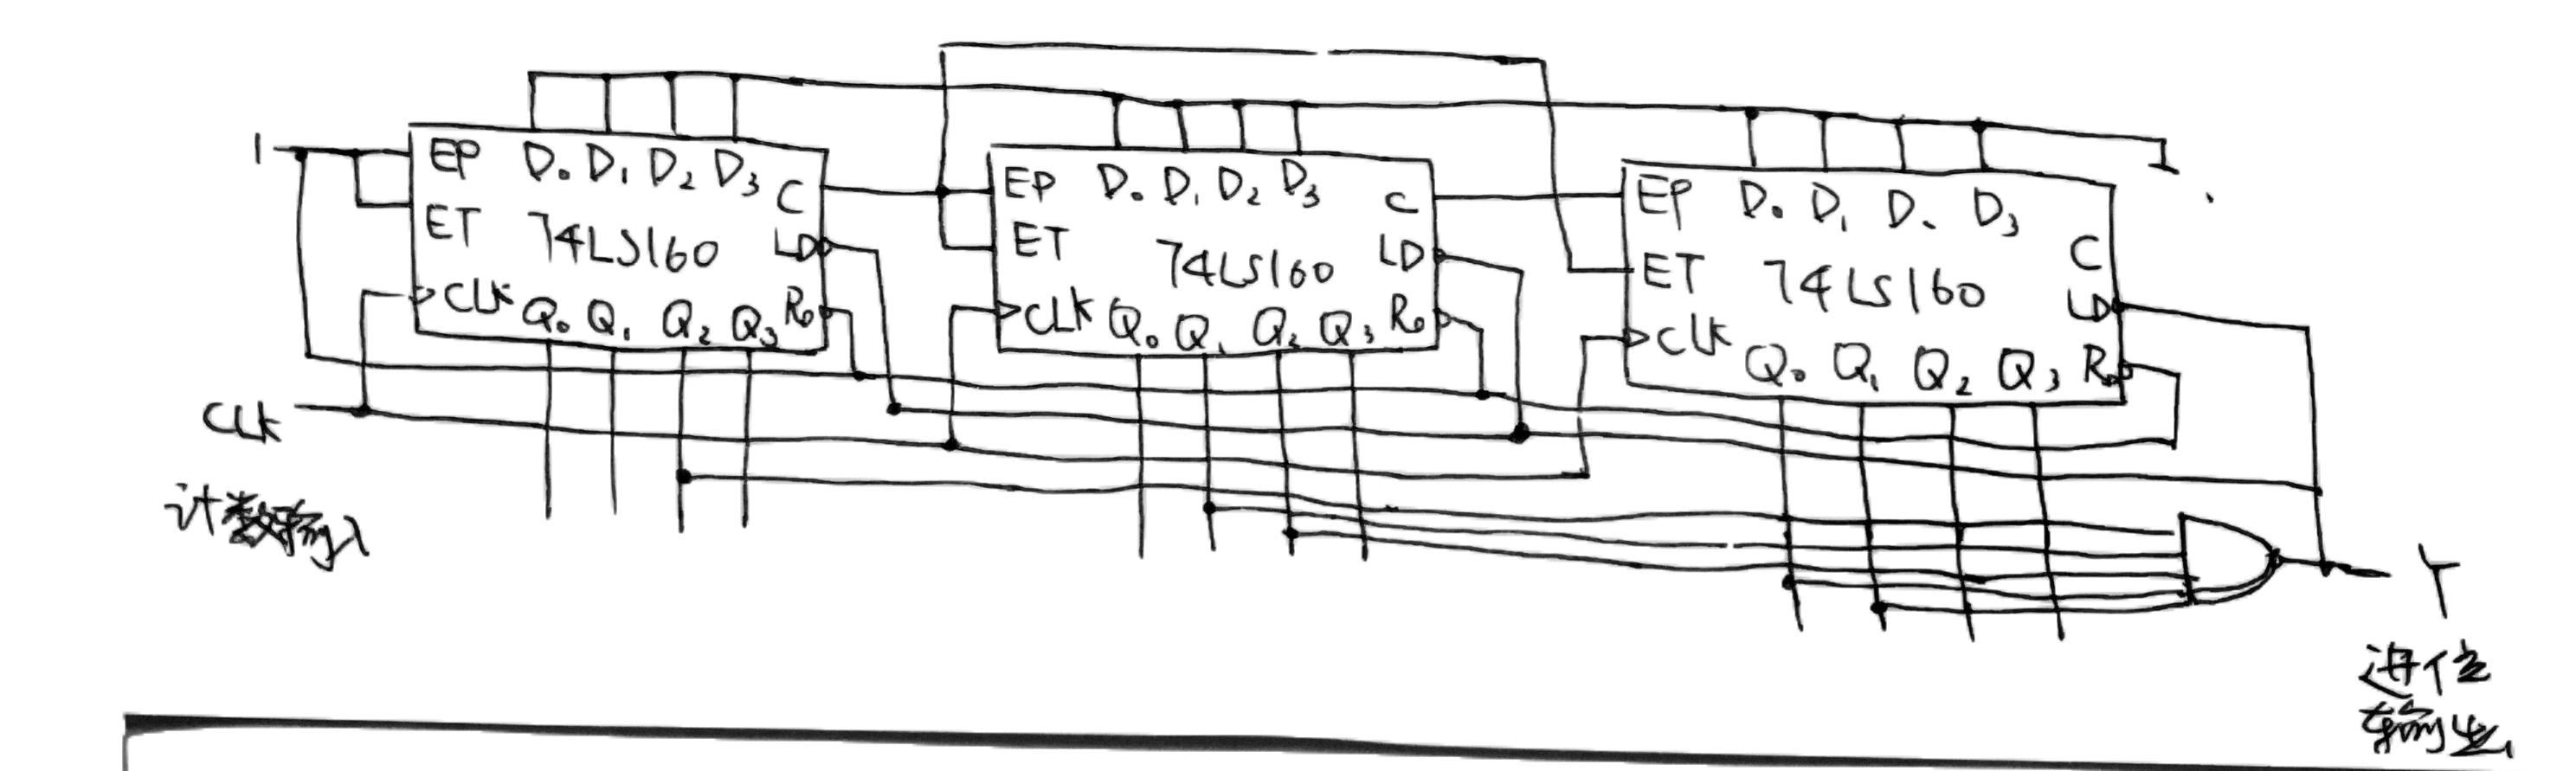 1
EP D₀ D₁ D₂ D₃
C
ET 74LS160 LD
CLK Q₀ Q₁ Q₂ Q₃ R₀
EP D₀ D₁ D₂ D₃
C
ET 74LS160 LD
CLK Q₀ Q₁ Q₂ Q₃ R₀
EP D₀ D₁ D. D₃
C
ET 74LS160
LD
CLK Q₀ Q₁ Q₂ Q₃ R₀
CLK
计数输入
Y
进位
输出